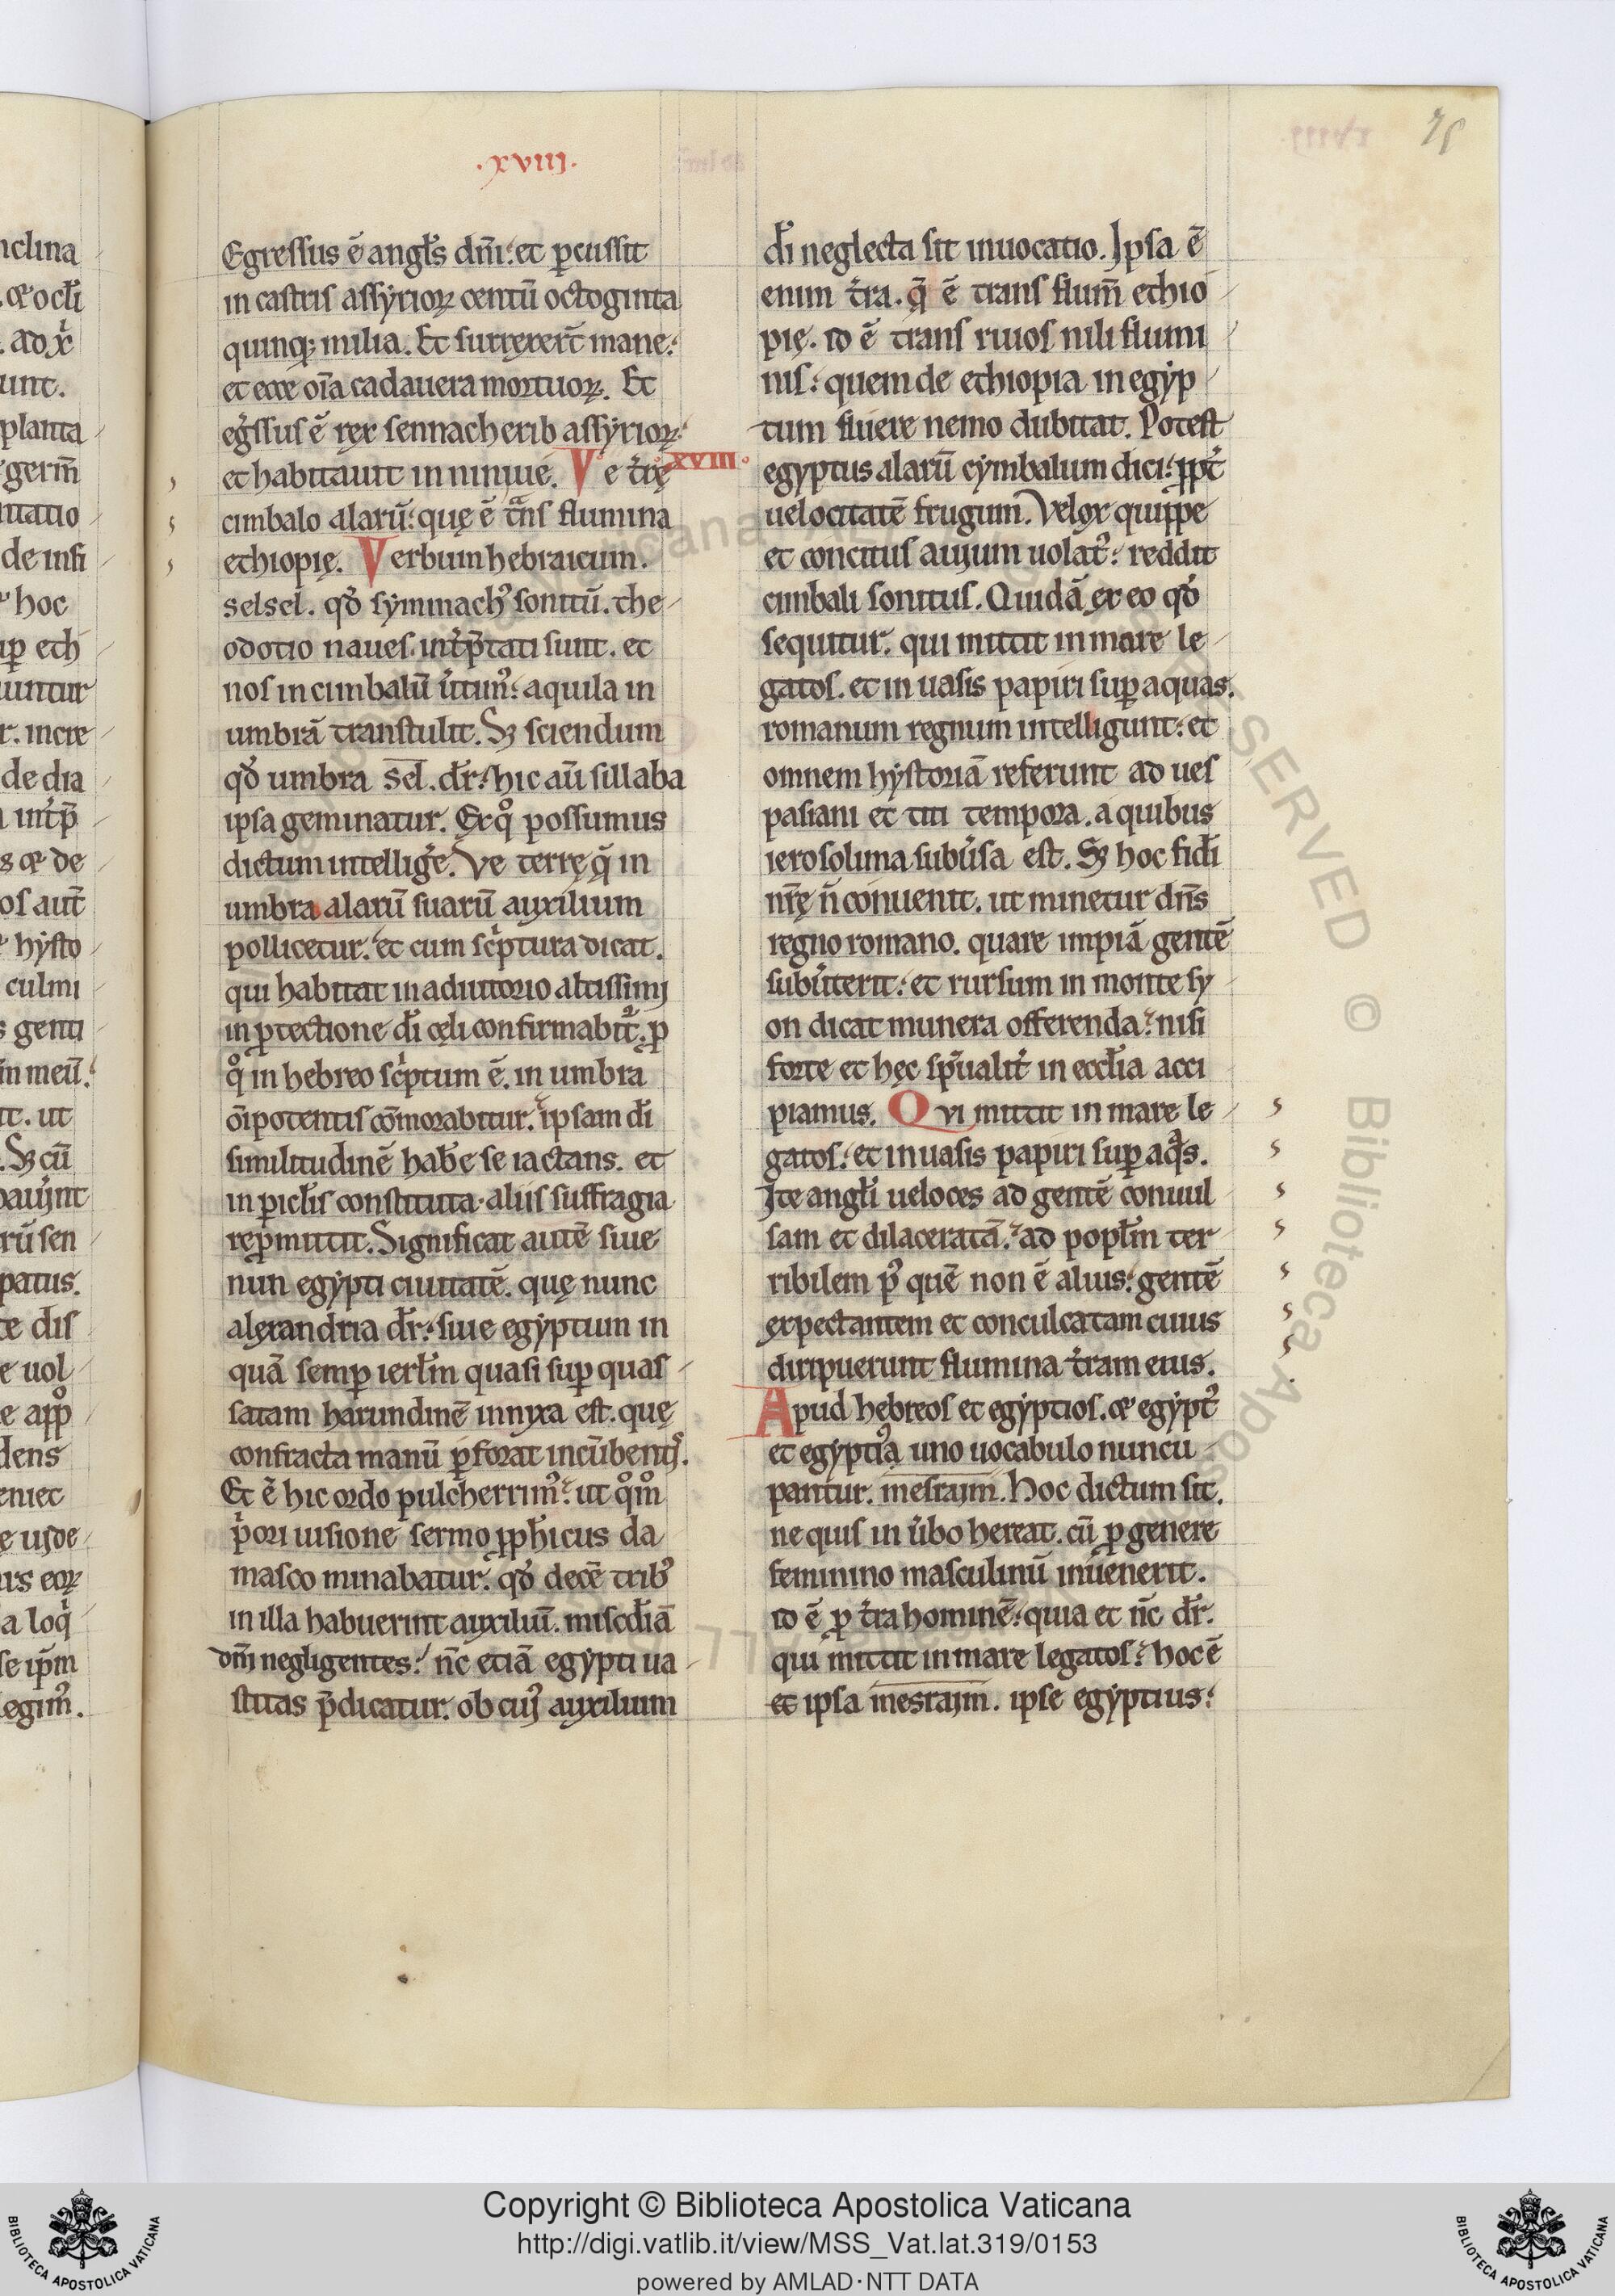 .xviij.
75
Egressus ē angl̄s dn̄i: et ꝑcussit
in castris assyrioꝝ centū octoginta
quinq; milia. Et surręxer̄t mane:
et ecce om̄a cadauera mortuoꝝ. Et
eg̓ssus ē rex sennacherib assyrioꝝ:
et habitauit in niniue. Ve t̄rę .XVIII.
cimbalo alarū: quę ē t̄ns flumina
ethiopię. Verbum hebraicum.
selsel. qd̓ symmachꝰ sonitū. the
odotio naues. int̓p̄tati sunt. et
nos in cimbalū u̓timꝰ: aquila in
umbrā transtulit. Sꝫ sciendum
qd̓ umbra sel̄. dr̄: hic aū sillaba
ipsa geminatur. Ex qͦ possumus
dictum intellig̓e. Ve terrę q̄ in
umbra alarū suarū auxilium
pollicetur: et cum sc̓ptura dicat.
qui habitat in adiutorio altissimj
in ꝓtectione dī cęli confirmabit᷑. ꝓ
qͦ in hebreo sc̓ptum ē. in umbra
om̄ipotentis com̄orabitur: ipsam dī
similitudinē hab̄e se iactans. et
in ꝑicl̄is constituta aliis suffragia
reꝓmittit. Significat autē siue
nun egypti ciuitatē. quę nunc
alexandria dr̄: siue egyptum in
quā semꝑ ierl̄m quasi suꝑ quas
satam harundinē innyxa est. quę
confracta manū ꝑforat incūbentiꝰ.
Et ē hic ordo pulcherrimꝰ: ut qͦm̊
p̓ori uisione sermo ꝓph̄icus da
masco minabatur. qd̓ decē tribꝰ
in illa habuerint auxiliū. miscd̄iā
dn̄i negligentes: nc̄ etiā egypti ua
stitas p̄dicatur. ob cuiꝰ auxilium
dī neglecta sit inuocatio. Ipsa ē
enim t̄ra. q̄ ē trans flum̄ ethio
pię. id ē trans riuos nili flumi
nis: quem de ethiopia in egyp
tum fluere nemo dubitat. Potest
egyptus alarū cymbalum dici: ꝓpt̓
uelocitatē frugum. Velox quippe
et concitus auium uolatꝰ: reddit
cimbali sonitus. Quidā ex eo qd̓
sequitur. qui mittit in mare le
gatos. et in uasis papiri suꝑ aquas.
romanum regnum intelligunt: et
omnem hystoriā referunt ad ues
pasiani et titi tempora. a quibus
ierosolima subu̓sa est. Sꝫ hoc fidī
nr̄ę n̄ conuenit. ut minetur dn̄s
regno romano. quare impiā gentē
subu̓terit: et rursum in monte sy
on dicat munera offerenda: nisi
forte et hęc sp̄ualit̓ in eccl̄ia acci
piamus. Qvi mittit in mare le
gatos: et in uasis papiri suꝑ aq̄s.
Ite angl̄i ueloces ad gentē conuul
sam et dilaceratā: ad popl̄m ter
ribilem pꝰ quē non ē alius: gentē
expectantem et conculcatam cuius
diripuerunt flumina t̄ram eius.
Apud hebreos et egyptios. & egyptꝰ
et egyptiꝰ uno uocabulo nuncu
pantur. mesraim. Hoc dictum sit.
ne quis in u̓bo hereat. cū ꝓ genere
feminino masculinū inuenerit.
id ē ꝓ t̄ra hominē: quia et nc̄ dr̄.
qui mittit in mare legatos: hoc ē
et ipsa mesraim. ipse egyptius:
Copyright © Biblioteca Apostolica Vaticana
http://digi.vatlib.it/view/MSS_Vat.lat.319/0153
powered by AMLAD·NTT DATA